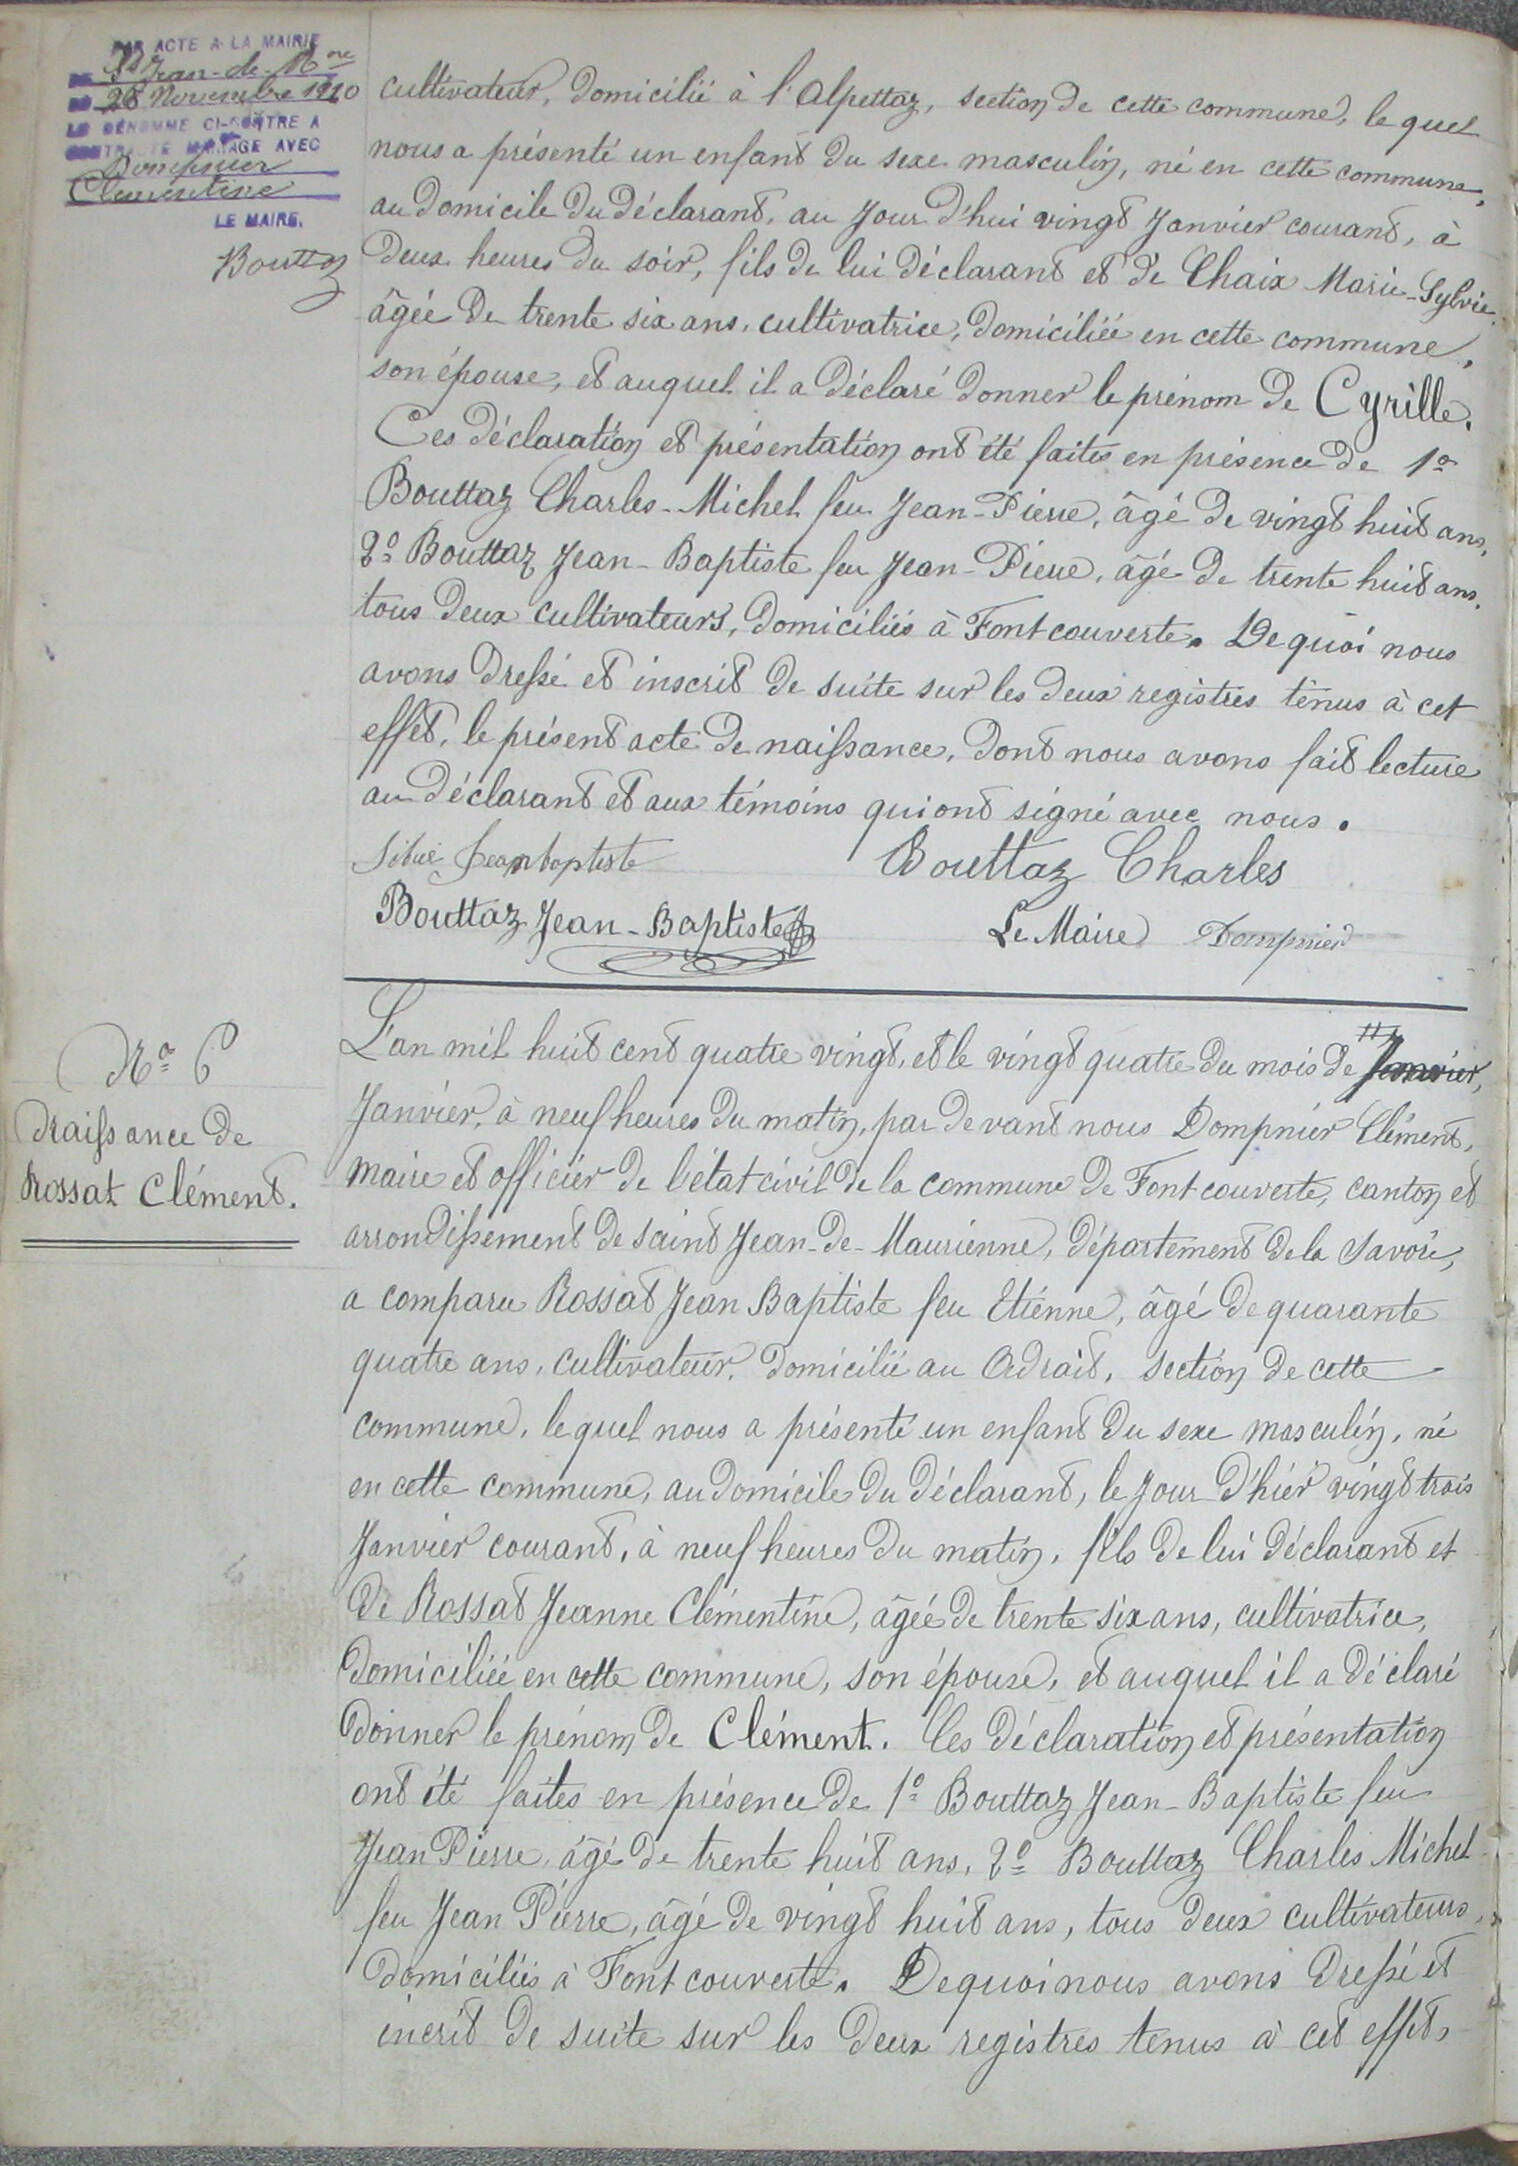 PAR ACTE A LA MAIRIE
DE St Jean-de-Mne
DU 28 Novembre 1910
LE DÉNOMMÉ CI-CONTRE A
CONTRACTÉ MARIAGE AVEC
Dompnier
Clémentine
LE MAIRE,
Bouttaz
cultivateur, domicilié à l'Alpettaz, section de cette commune, le quel
nous a présenté un enfant du sexe masculin, né en cette commune,
au domicile du déclarant, au jour d'hui vingt Janvier courant, à
deux heures du soir, fils de lui déclarant et de Chaix Marie-Sylvie
âgée de trente six ans, cultivatrice, domiciliée en cette commune,
son épouse, et auquel il a déclaré donner le prénom de Cyrille.
Ces déclaration et présentation ont été faites en présence de 1º
Bouttaz Charles-Michel feu Jean-Pierre, âgé de vingt huit ans,
2º Bouttaz Jean-Baptiste feu Jean-Pierre, âgé de trente huit ans.
tous deux cultivateurs, domiciliés à Fontcouverte. De quoi nous
avons dressé et inscrit de suite sur les deux registres tenus à cet
effet, le présent acte de naissance, dont nous avons fait lecture
au déclarant et aux témoins qui ont signé avec nous.
Sibué Jean baptiste Bouttaz Charles
Bouttaz Jean-Baptiste Le Maire Dompnier
Nº 6
Naissance de
Rossat Clément.
L'an mil huit cent quatre vingt, et le vingt quatre du mois de Janvier,
Janvier, à neuf heures du matin, par devant nous Dompnier Clément,
maire et officier de l'état civil de la commune de Fontcouverte, canton et
arrondissement de saint Jean-de-Maurienne, département de la Savoie,
a comparu Rossat Jean Baptiste feu Etienne, âgé de quarante
quatre ans, cultivateur, domicilié au Adrait, section de cette
commune, le quel nous a présenté un enfant du sexe masculin, né
en cette commune, au domicile du déclarant, le jour d'hier vingt trois
Janvier courant, à neuf heures du matin, fils de lui déclarant et
de Rossat Jeanne Clémentine, âgée de trente six ans, cultivatrice,
domiciliée en cette commune, son épouse, et auquel il a déclaré
donner le prénom de Clément. Ces déclaration et présentation
ont été faites en présence de 1º Bouttaz Jean-Baptiste feu
Jean Pierre, âgé de trente huit ans, 2º Bouttaz Charles Michel
feu Jean Pierre, âgé de vingt huit ans, tous deux cultivateurs,
domiciliés à Fontcouverte. De quoi nous avons dressé et
incrit de suite sur les deux registres tenus à cet effet,